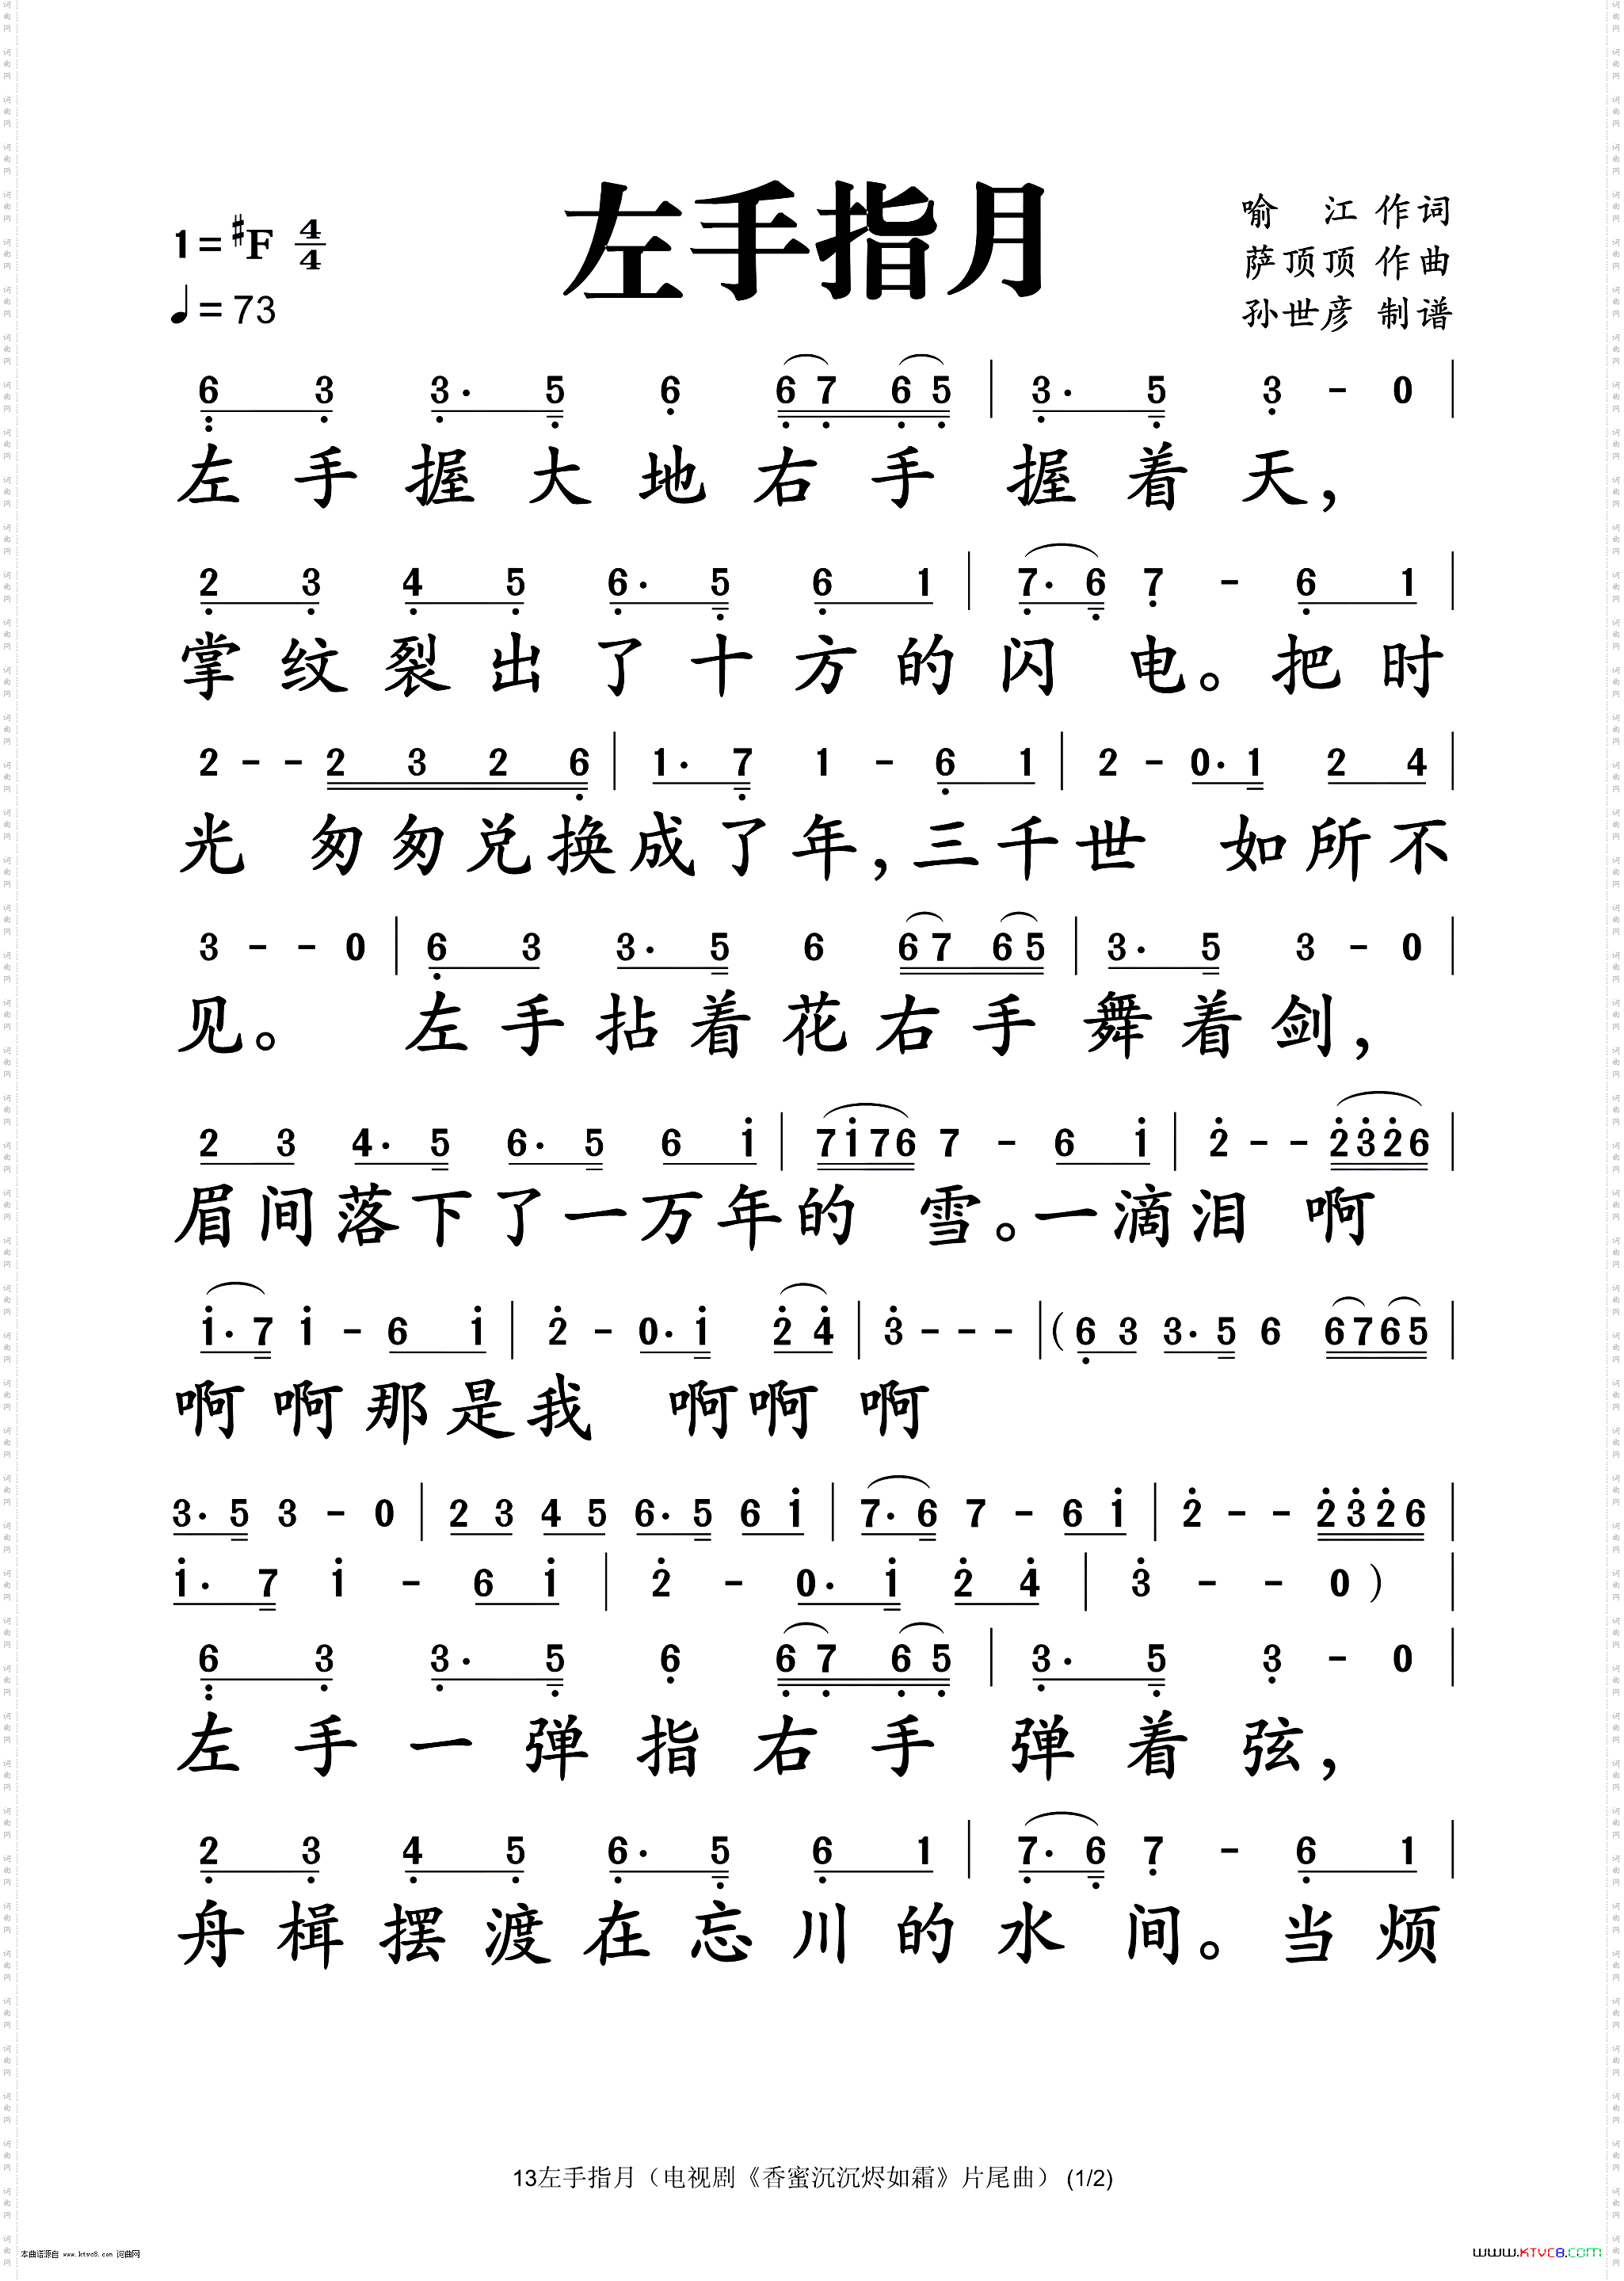 左手指月
1=♯F 4/4
♩=73
喻 江 作词
萨顶顶 作曲
孙世彦 制谱
6 3 3· 5 6 6 7 6 5 | 3· 5 3 - 0 |
左手握大地右手握着天，
2 3 4 5 6· 5 6 1 | 7· 6 7 - 6 1 |
掌纹裂出了十方的闪电。把时
2 - - 2 3 2 6 | 1· 7 1 - 6 1 | 2 - 0· 1 2 4 |
光 匆匆兑换成了年，三千世 如所不
3 - - 0 | 6 3 3· 5 6 6 7 6 5 | 3· 5 3 - 0 |
见。 左手拈着花右手舞着剑，
2 3 4· 5 6· 5 6 1 | 7 1 7 6 7 - 6 1 | 2 - - 2 3 2 6 |
眉间落下了一万年的 雪。一滴泪 啊
1· 7 1 - 6 1 | 2 - 0· 1 2 4 | 3 - - - | (6 3 3· 5 6 6 7 6 5 |
啊啊那是我 啊啊啊
3· 5 3 - 0 | 2 3 4 5 6· 5 6 1 | 7· 6 7 - 6 1 | 2 - - 2 3 2 6 |
1· 7 1 - 6 1 | 2 - 0· 1 2 4 | 3 - - 0 ) |
6 3 3· 5 6 6 7 6 5 | 3· 5 3 - 0 |
左手一弹指右手弹着弦，
2 3 4 5 6· 5 6 1 | 7· 6 7 - 6 1 |
舟楫摆渡在忘川的水间。当烦
13左手指月（电视剧《香蜜沉沉烬如霜》片尾曲） (1/2)
本曲谱源自 www.ktvc8.com 词曲网
WWW.KTVC8.COM